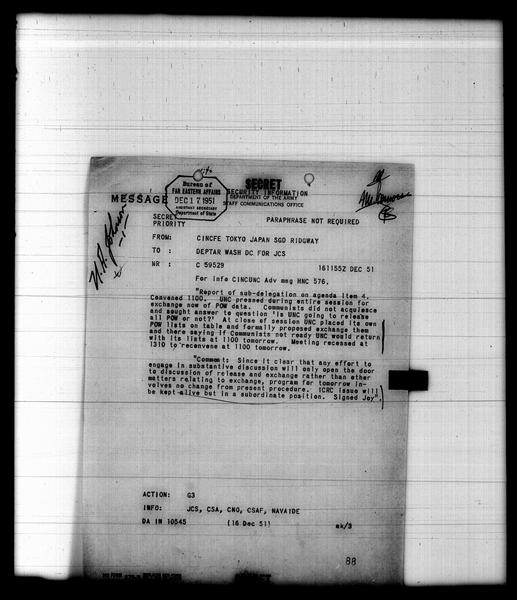 SECRET
SECURITY INFORMATION
DEPARTMENT OF THE ARMY
STAFF COMMUNICATIONS OFFICE
MESSAGE
Bureau of
FAR EASTERN AFFAIRS
DEC 17 1951
ASSISTANT SECRETARY
Department of State
SECRET
PRIORITY
PARAPHRASE NOT REQUIRED
FROM: CINCFE TOKYO JAPAN SGD RIDGWAY
TO : DEPTAR WASH DC FOR JCS
NR : C 59529 161155Z DEC 51
For info CINCUNC Adv msg HNC 576.
"Report of sub-delegation on agenda item 4.
Convened 1100. UNC pressed during entire session for
exchange now of POW data. Communists did not acquiesce
and sought answer to question 'is UNC going to release
all POW or not?' At close of session UNC placed its own
POW lists on table and formally proposed exchange them
and there saying if Communists not ready UNC would return
with its lists at 1100 tomorrow. Meeting recessed at
1310 to reconvene at 1100 tomorrow.
"Comment: Since it clear that any effort to
engage in substantive discussion will only open the door
to discussion of release and exchange rather than other
matters relating to exchange, program for tomorrow in-
volves no change from present procedure. ICRC issue will
be kept alive but in a subordinate position. Signed Joy".
ACTION: G3
INFO: JCS, CSA, CNO, CSAF, NAVAIDE
DA IN 10545 (16 Dec 51) ak/3
88
SECRET